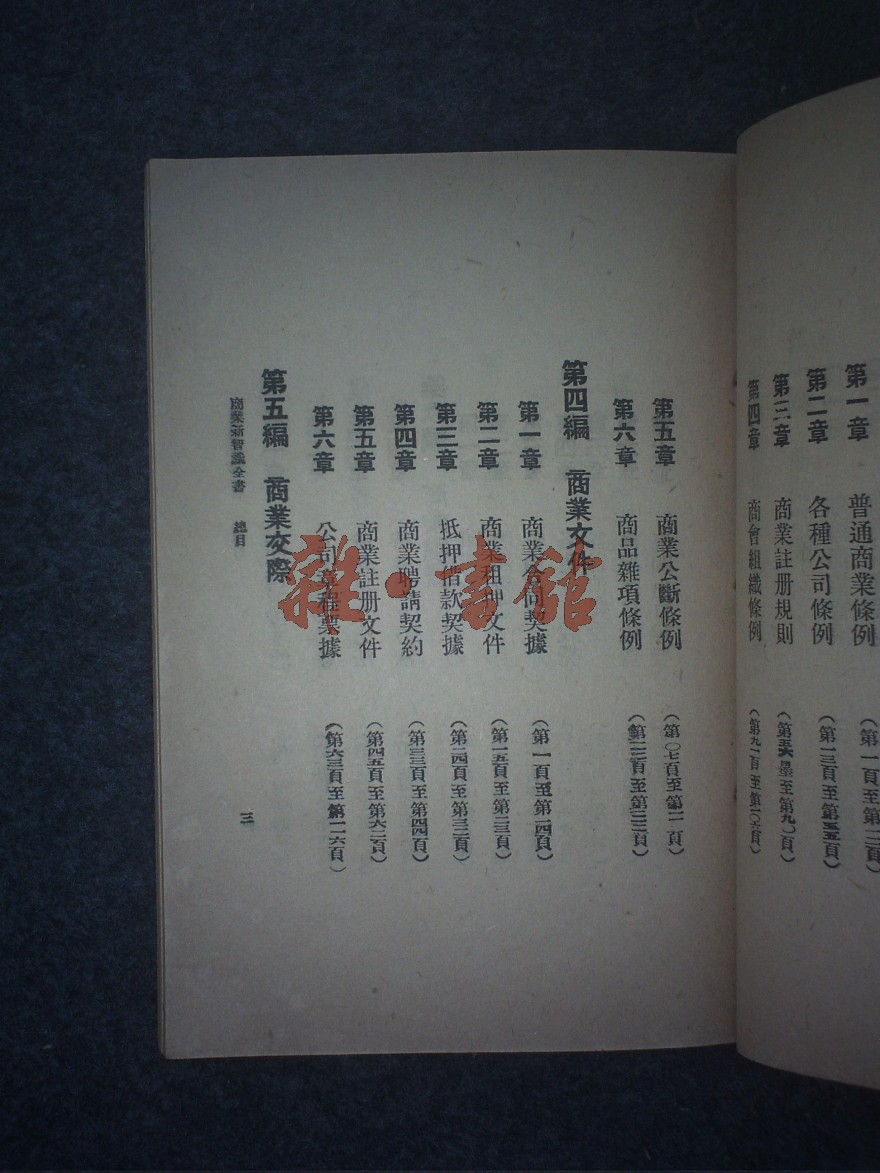 第一章 普通商業條例 （第一頁至第一二頁）
第二章 各種公司條例 （第一三頁至第五五頁）
第三章 商業註册規則
第四章 商會組織條例 （第九一頁至第一〇六頁）
第五章 商業公斷條例
第六章 商品雜項條例
第四編 商業文件
第一章 商業合同契據 （第一頁至第一四頁）
第二章 商業租押文件 （第一五頁至第二三頁）
第三章 抵押借款契據 （第二四頁至第三二頁）
第四章 商業聘請契約 （第三三頁至第四四頁）
第五章 商業註册文件 （第四五頁至第六二頁）
第六章 公司章程票據 （第六三頁至第一一六頁）
第五編 商業交際
商業新智識全書 總目
三
雜·書館